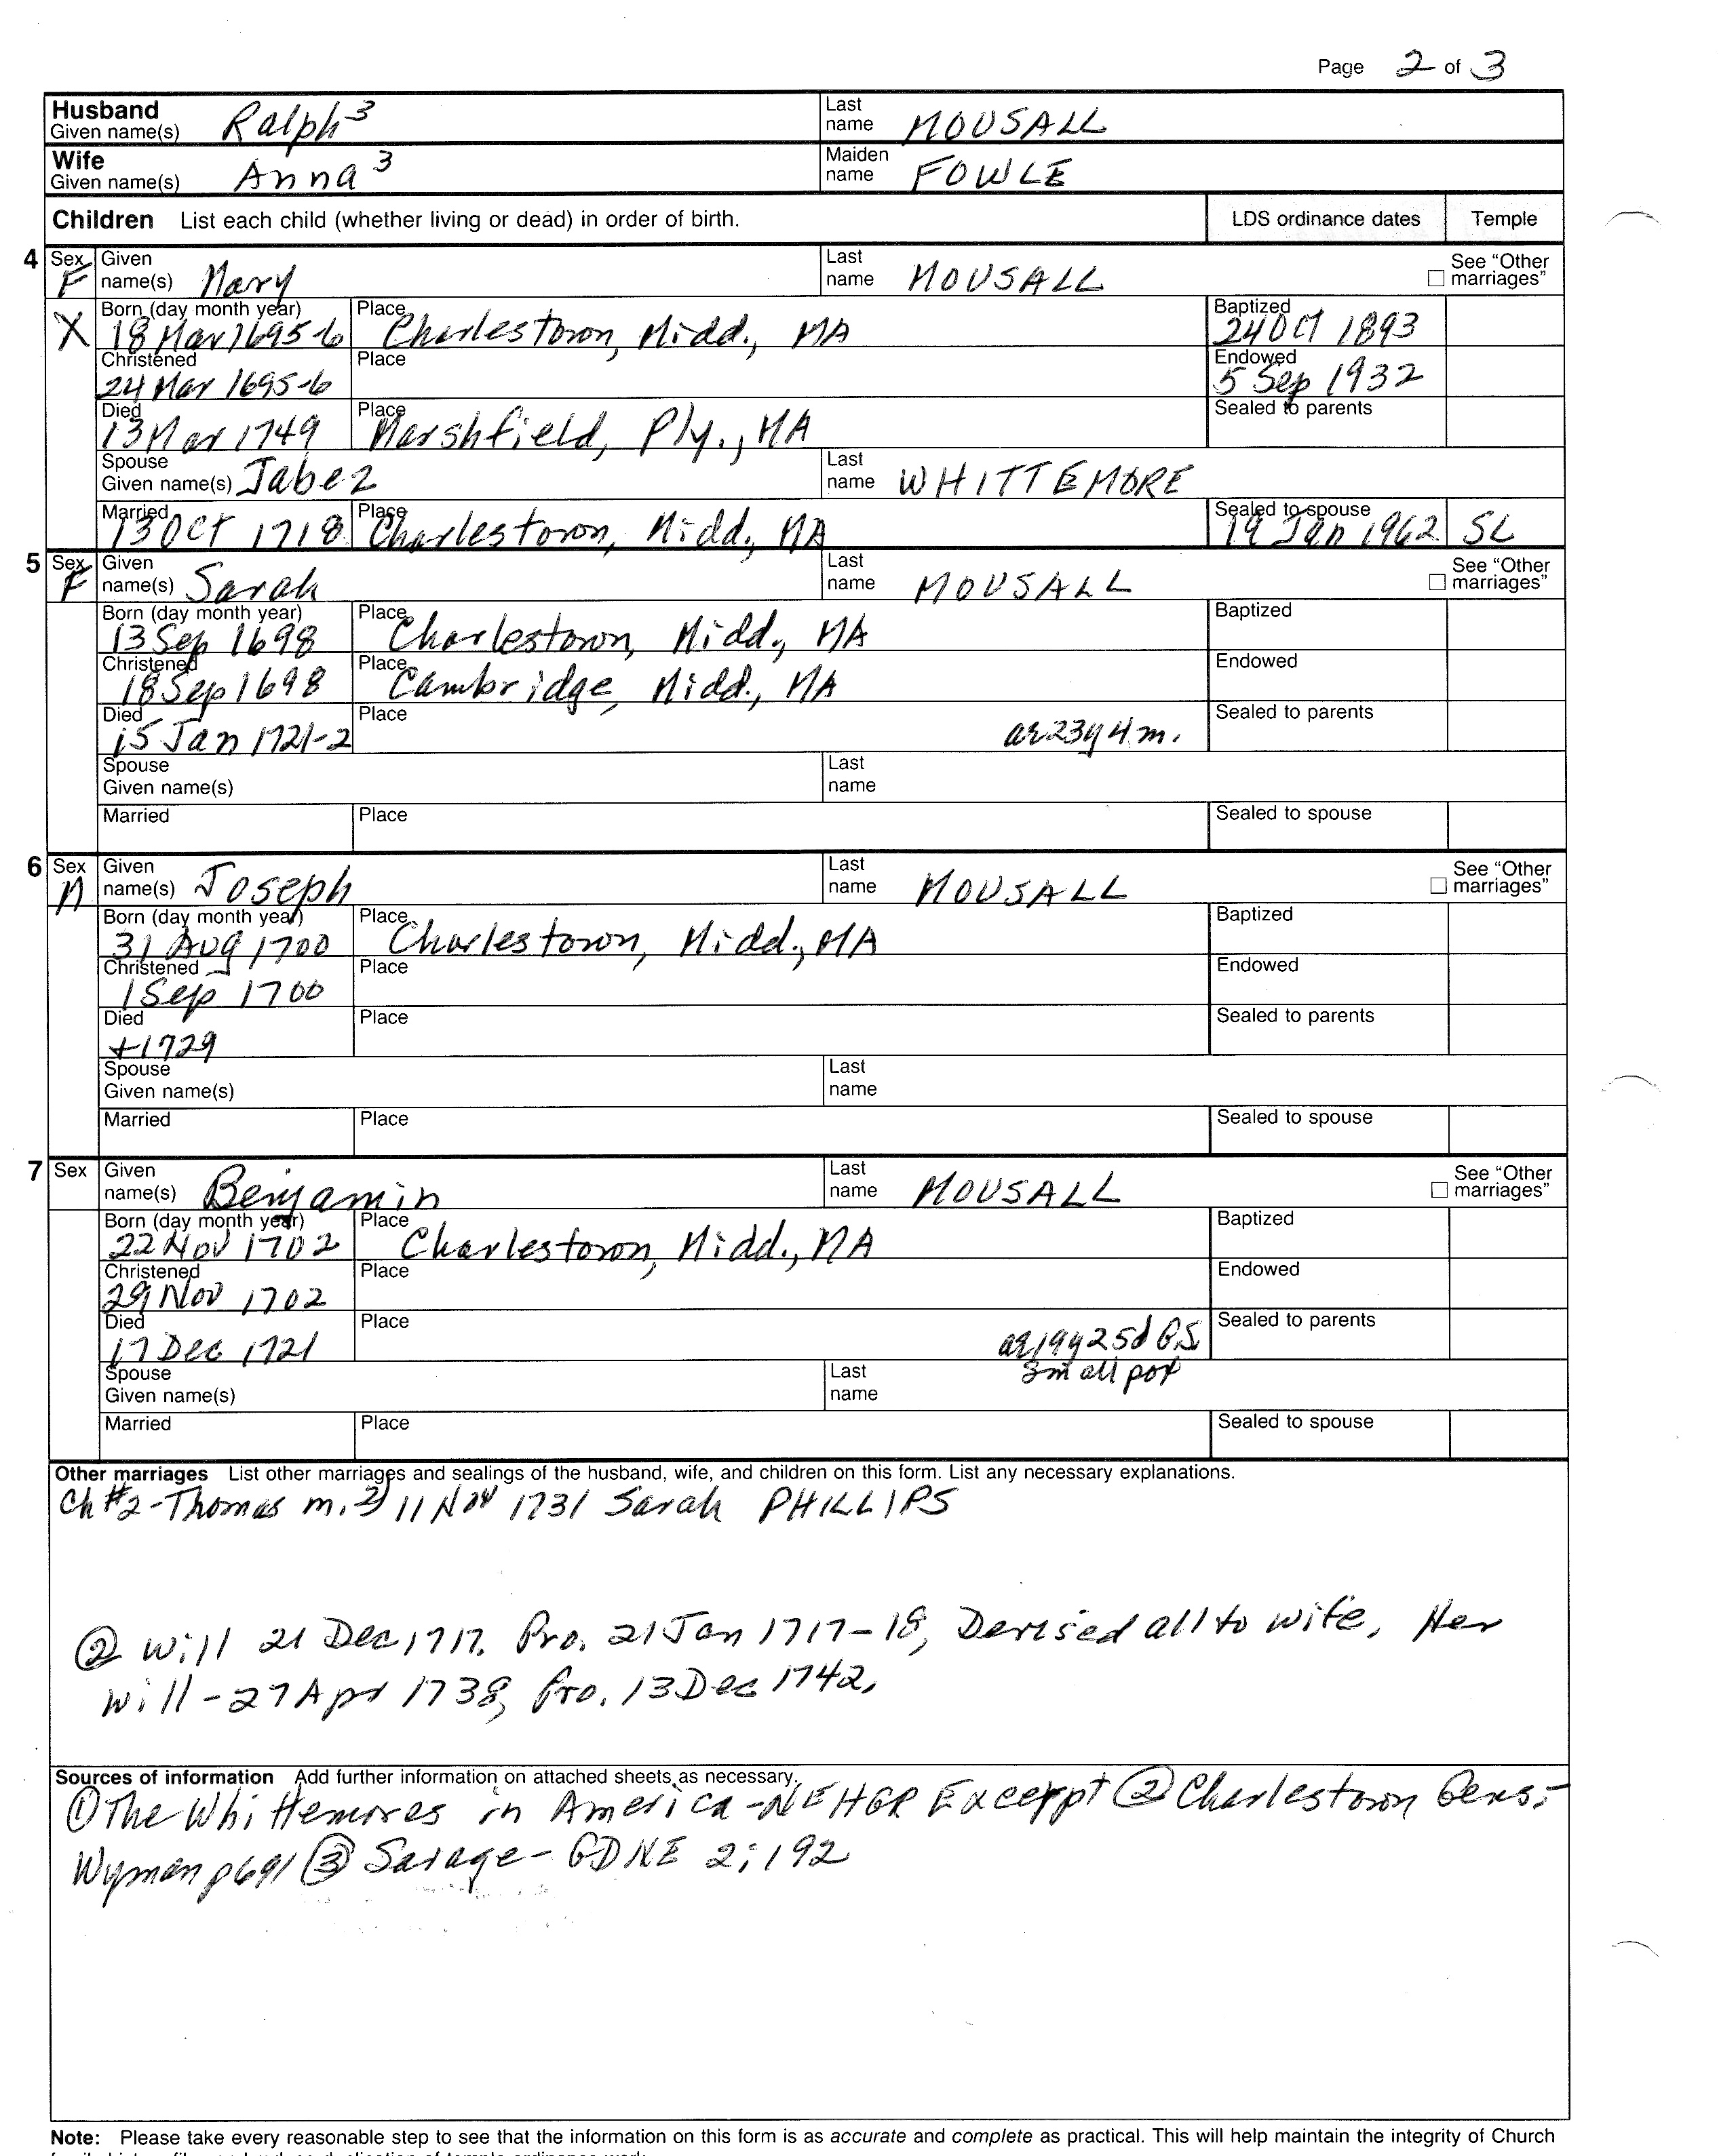 Page 2 of 3
Husband Given name(s) Ralph³ Last name MOUSALL
Wife Given name(s) Anna³ Maiden name FOWLE
Children List each child (whether living or dead) in order of birth. LDS ordinance dates Temple
4 Sex F Given name(s) Mary Last name MOUSALL See "Other marriages"
X Born (day month year) 18 Mar 1695-6 Place Charlestown, Midd., MA Baptized 24 Oct 1893
Christened 24 Mar 1695-6 Place Endowed 5 Sep 1932
Died 13 Mar 1749 Place Marshfield, Ply., MA Sealed to parents
Spouse Given name(s) Jabez Last name WHITTEMORE
Married 13 Oct 1718 Place Charlestown, Midd., MA Sealed to spouse 19 Jan 1962 SL
5 Sex F Given name(s) Sarah Last name MOUSALL See "Other marriages"
Born (day month year) 13 Sep 1698 Place Charlestown, Midd., MA Baptized
Christened 18 Sep 1698 Place Cambridge, Midd., MA Endowed
Died 15 Jan 1721-2 Place ae 23y 4m. Sealed to parents
Spouse Given name(s) Last name
Married Place Sealed to spouse
6 Sex M Given name(s) Joseph Last name MOUSALL See "Other marriages"
Born (day month year) 31 Aug 1700 Place Charlestown, Midd., MA Baptized
Christened 1 Sep 1700 Place Endowed
Died +1729 Place Sealed to parents
Spouse Given name(s) Last name
Married Place Sealed to spouse
7 Sex Given name(s) Benjamin Last name MOUSALL See "Other marriages"
Born (day month year) 22 Nov 1702 Place Charlestown, Midd., MA Baptized
Christened 29 Nov 1702 Place Endowed
Died 17 Dec 1721 Place ae 19y 25d G.S. Sealed to parents
Spouse Given name(s) Last name small pox
Married Place Sealed to spouse
Other marriages List other marriages and sealings of the husband, wife, and children on this form. List any necessary explanations.
Ch #2-Thomas m. 2) 11 Nov 1731 Sarah PHILLIPS
② Will 21 Dec 1717. Pro. 21 Jan 1717-18, Devised all to wife. Her
Will-27 Apr 1738, Pro. 13 Dec 1742.
Sources of information Add further information on attached sheets as necessary.
① The Whittemores in America-NEHGR Excerpt ② Charlestown Gens.-
Wyman p691 ③ Savage-GDNE 2:192
Note: Please take every reasonable step to see that the information on this form is as accurate and complete as practical. This will help maintain the integrity of Church